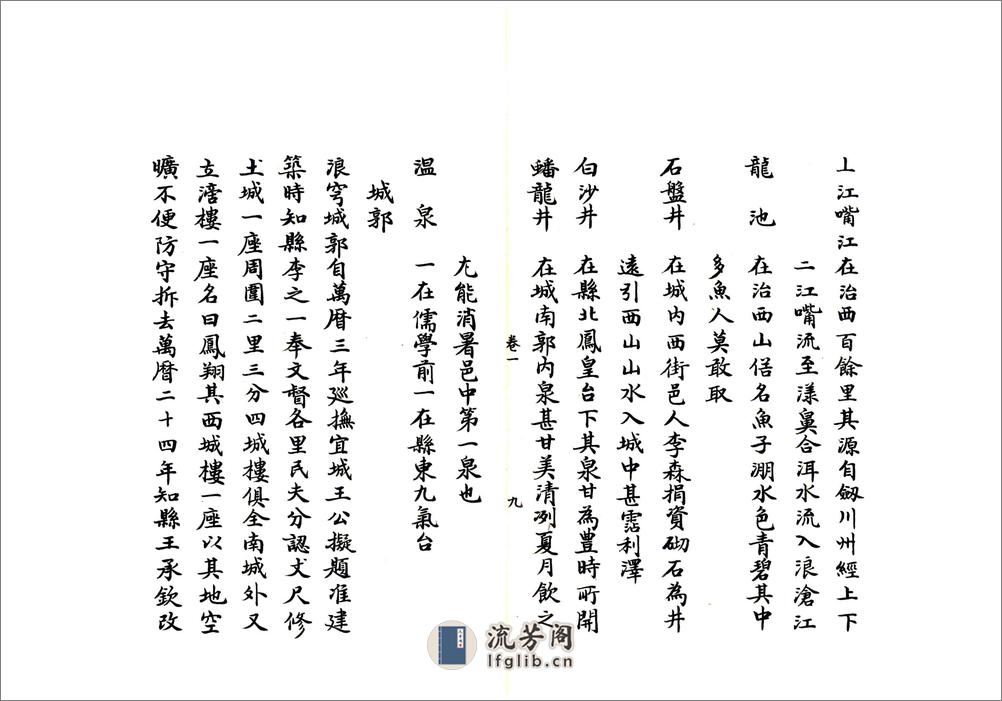 上江嘴江在治西百餘里其源自劔川州經上下
二江嘴流至漾鼻合洱水流入浪滄江
龍　池　在治西山俗名魚子淜水色青碧其中
多魚人莫敢取
石盤井　在城内西街邑人李森捐資砌石為井
遠引西山山水入城中甚霑利澤
白沙井　在縣北鳳皇台下其泉甘為豊時所開
蟠龍井　在城南郭内泉甚甘美清冽夏月飲之
卷一
九
尤能消暑邑中第一泉也
温　泉　一在儒學前一在縣東九氣台
城郭
浪穹城郭自萬曆三年巡撫宜城王公擬題准建
築時知縣李之一奉文督各里民夫分認丈尺修
土城一座周圍二里三分四城樓俱全南城外又
立 樓一座名曰鳳翔其西城樓一座以其地空
曠不便防守拆去萬曆二十四年知縣王承欽改
流芳阁
lfglib.cn